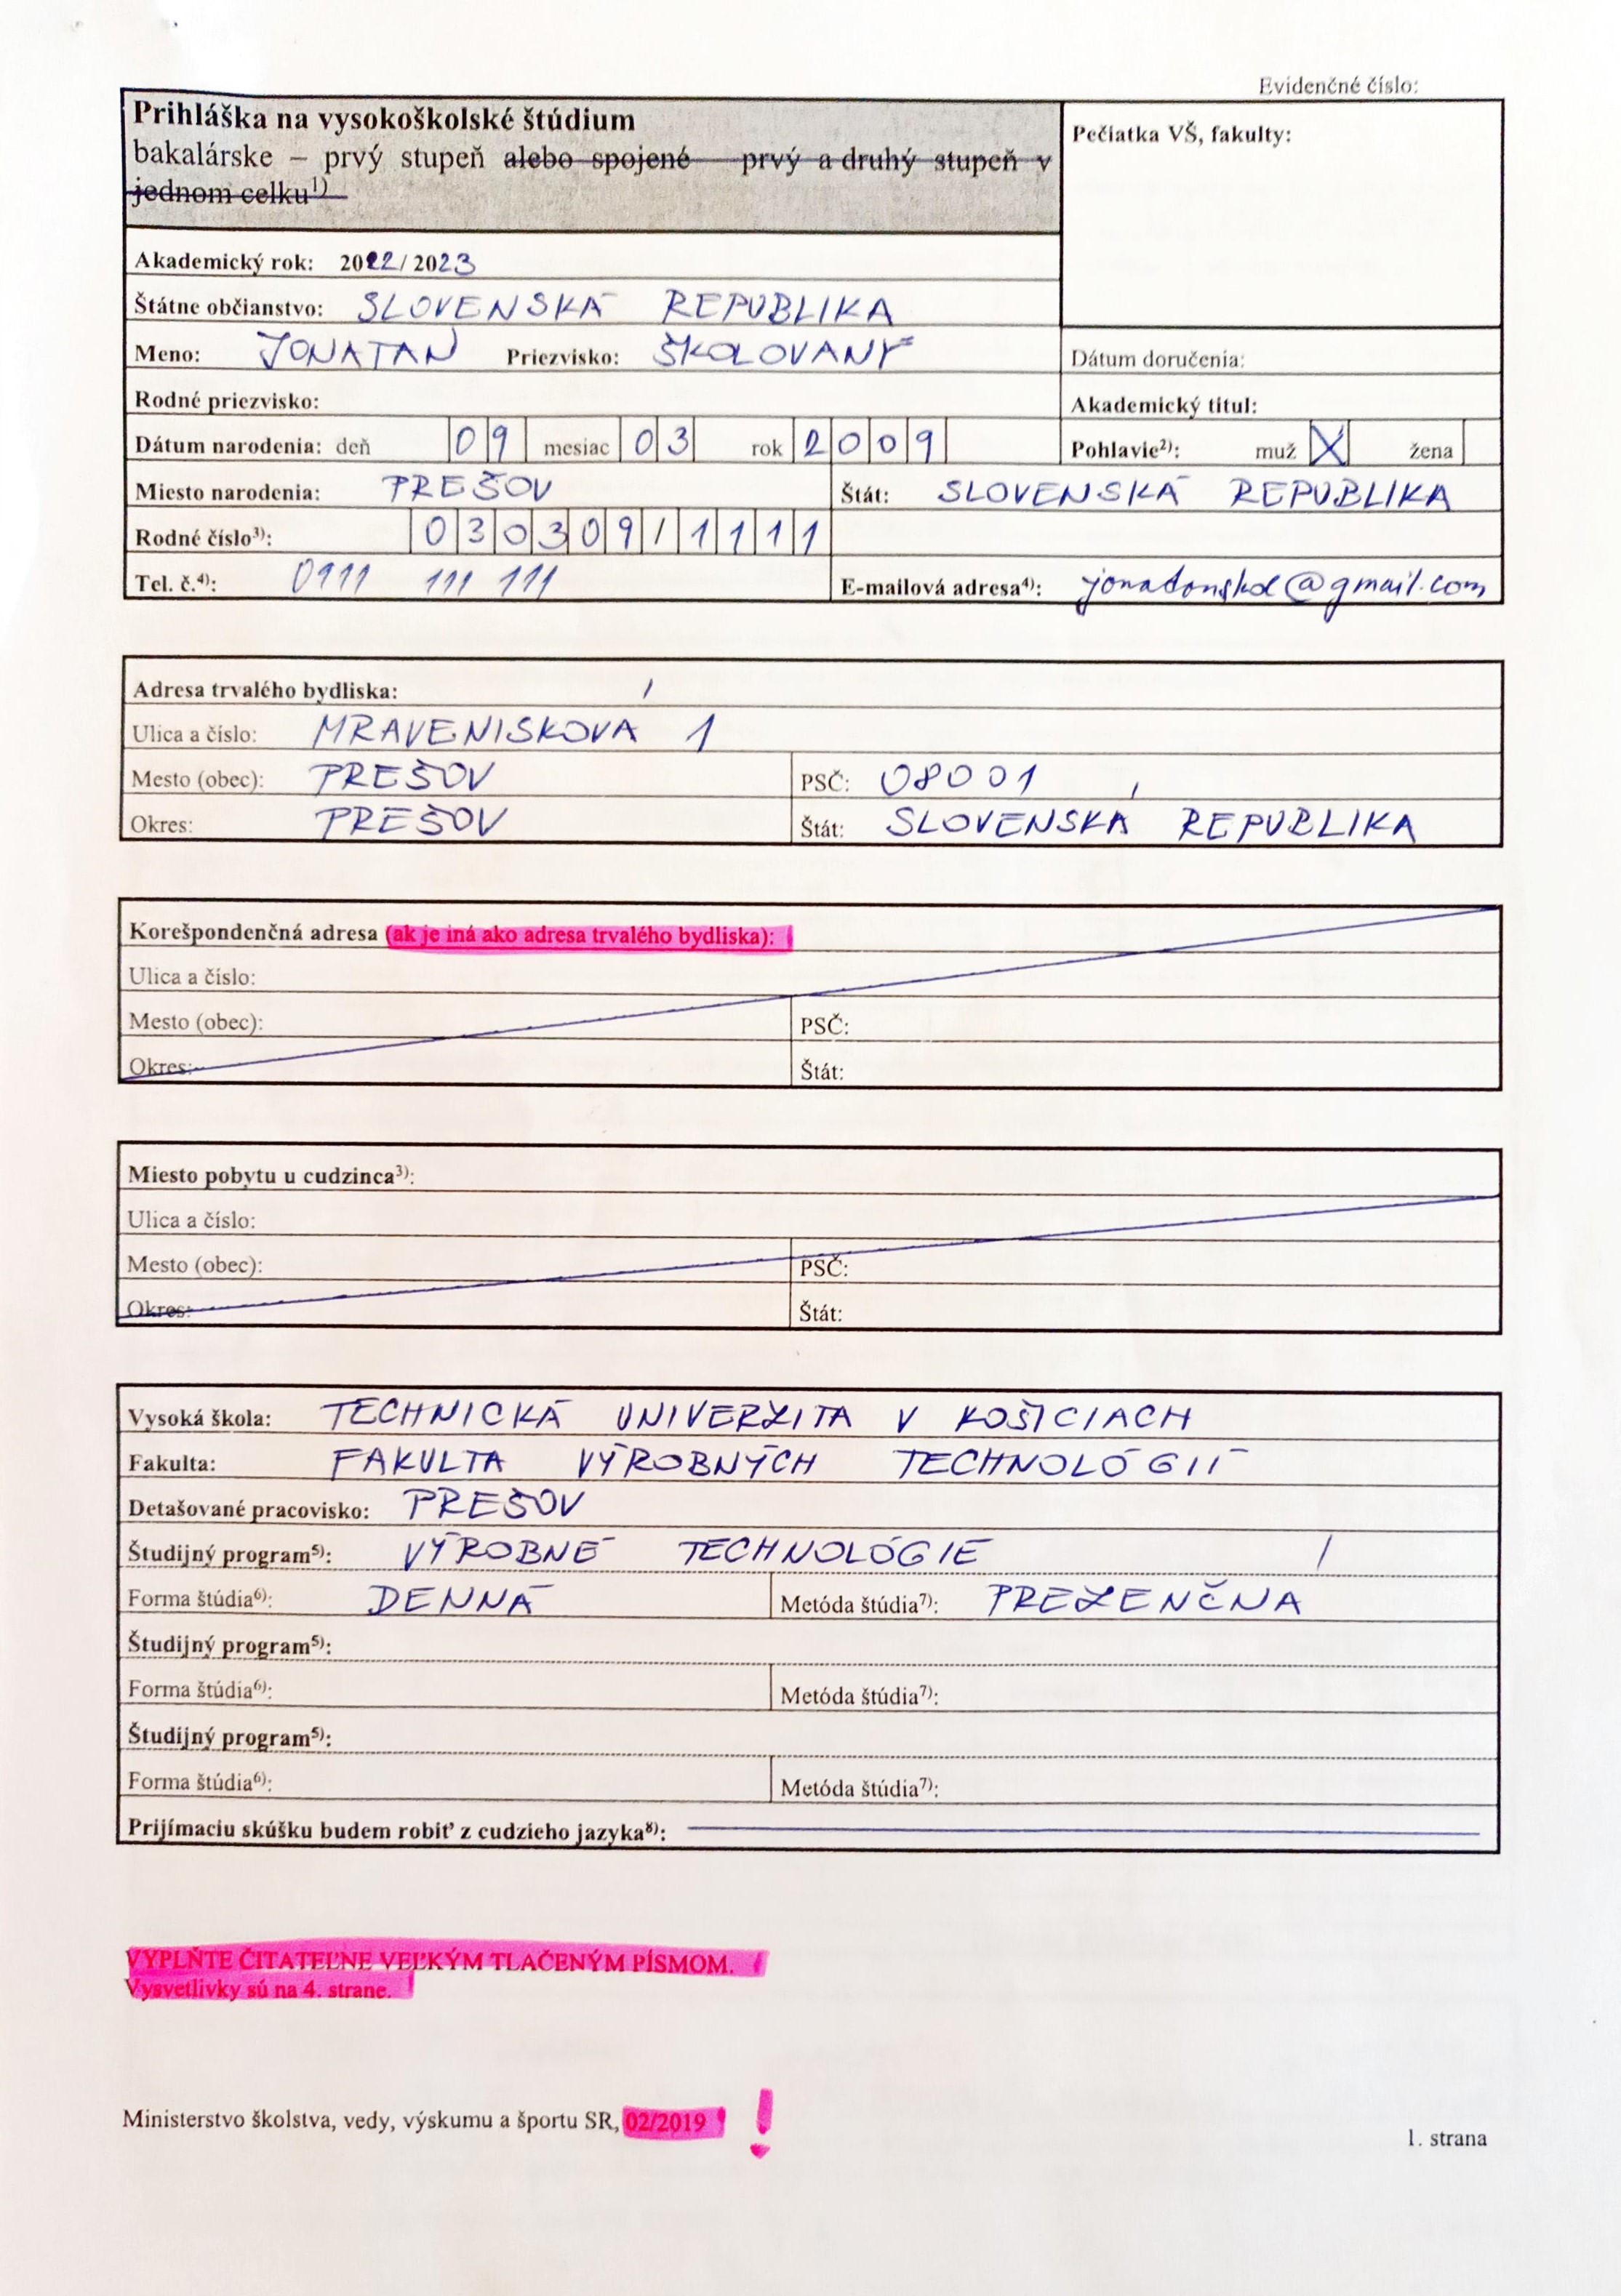 Evidenčné číslo:
Prihláška na vysokoškolské štúdium
bakalárske – prvý stupeň alebo spojené – prvý a druhý stupeň v
jednom celku1)
Pečiatka VŠ, fakulty:
Akademický rok: 2022/2023
Štátne občianstvo: SLOVENSKÁ REPUBLIKA
Meno: JONATAN Priezvisko: ŠKOLOVANÝ
Dátum doručenia:
Rodné priezvisko:
Akademický titul:
Dátum narodenia: deň 09 mesiac 03 rok 2009 Pohlavie2): muž X žena
Miesto narodenia: PREŠOV Štát: SLOVENSKÁ REPUBLIKA
Rodné číslo3): 030309/1111
Tel. č.4): 0911 111 111 E-mailová adresa4): jonatanskol@gmail.com
Adresa trvalého bydliska:
Ulica a číslo: MRAVENISKOVÁ 1
Mesto (obec): PREŠOV PSČ: 08001
Okres: PREŠOV Štát: SLOVENSKÁ REPUBLIKA
Korešpondenčná adresa (ak je iná ako adresa trvalého bydliska):
Ulica a číslo:
Mesto (obec): PSČ:
Okres: Štát:
Miesto pobytu u cudzinca3):
Ulica a číslo:
Mesto (obec): PSČ:
Okres: Štát:
Vysoká škola: TECHNICKÁ UNIVERZITA V KOŠICIACH
Fakulta: FAKULTA VÝROBNÝCH TECHNOLÓGIÍ
Detašované pracovisko: PREŠOV
Študijný program5): VÝROBNÉ TECHNOLÓGIE
Forma štúdia6): DENNÁ Metóda štúdia7): PREZENČNÁ
Študijný program5):
Forma štúdia6): Metóda štúdia7):
Študijný program5):
Forma štúdia6): Metóda štúdia7):
Prijímaciu skúšku budem robiť z cudzieho jazyka8):
VYPLŇTE ČITATEĽNE VEĽKÝM TLAČENÝM PÍSMOM.
Vysvetlivky sú na 4. strane.
Ministerstvo školstva, vedy, výskumu a športu SR, 02/2019 !
1. strana